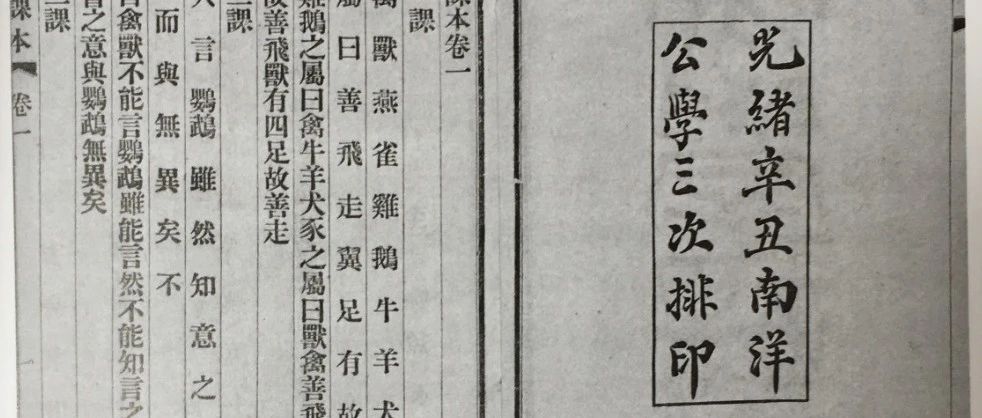 光緒辛丑南洋
公學三次排印
課本卷一
課
禽獸燕雀雞鵝牛羊犬
屬曰善飛走翼足有故
雞鵝之屬曰禽牛羊犬豕之屬曰獸禽善飛
故善飛獸有四足故善走
二課
人言鸚鵡雖然知意之
而與無異矣不
禽獸不能言鸚鵡雖能言然不能知言之
之意與鸚鵡無異矣
課
課本 卷一 一